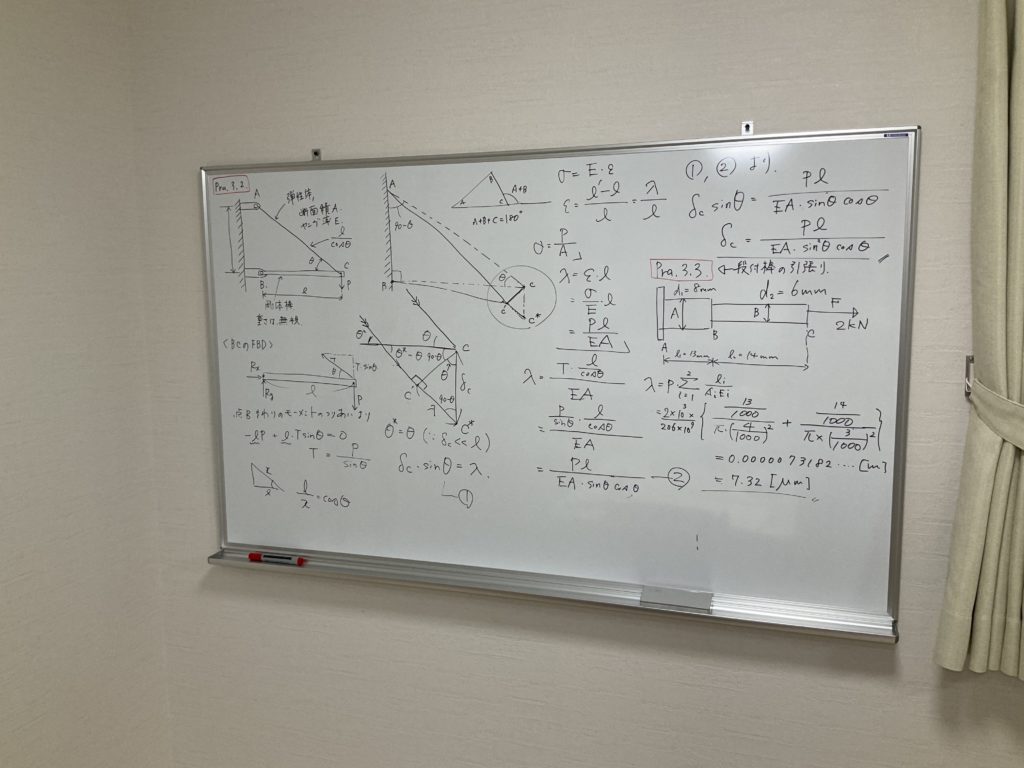 Pra.3.2.
A
弾性体,
断面積A.
ヤング率E.
l/cosθ
θ
C
B
P
l
剛体棒
重さは無視
〈BCのFBD〉
Rx
Ry
l
θ
T·sinθ
P
点Bまわりのモーメントのつりあいより
-lP + l·Tsinθ = 0
T = P/sinθ
x
θ
l
l/x = cosθ
A
90-θ
B
θ
C
C'
C*
A
B
C
A+B
A+B+C=180°
θ*
θ
θ*-θ
90-θ
C
C'
θ*
δc
λ
90-θ
C*
θ* = θ (∵ δc << l)
δc · sinθ = λ.
①
σ = E·ε
ε = (l'-l)/l = λ/l
σ = P/A
λ = ε·l
= σ/E · l
= Pl/EA
λ = (T · l/cosθ)/EA
= (P/sinθ · l/cosθ)/EA
= Pl/(EA·sinθ cosθ) — ②
①, ② より.
δc sinθ = Pl/(EA·sinθ cosθ)
δc = Pl/(EA·sin²θ cosθ)
Pra.3.3. ← 段付棒の引張り.
d₁=8mm
d₂=6mm
A
B
F
2kN
A
B
C
l₁=13mm
l₂=14mm
λ = P Σ(i=1→2) li/(AiEi)
= 2×10³/206×10⁹ × { (13/1000)/(π×(4/1000)²) + (14/1000)/(π×(3/1000)²) }
= 0.0000073182.... [m]
= 7.32 [μm]